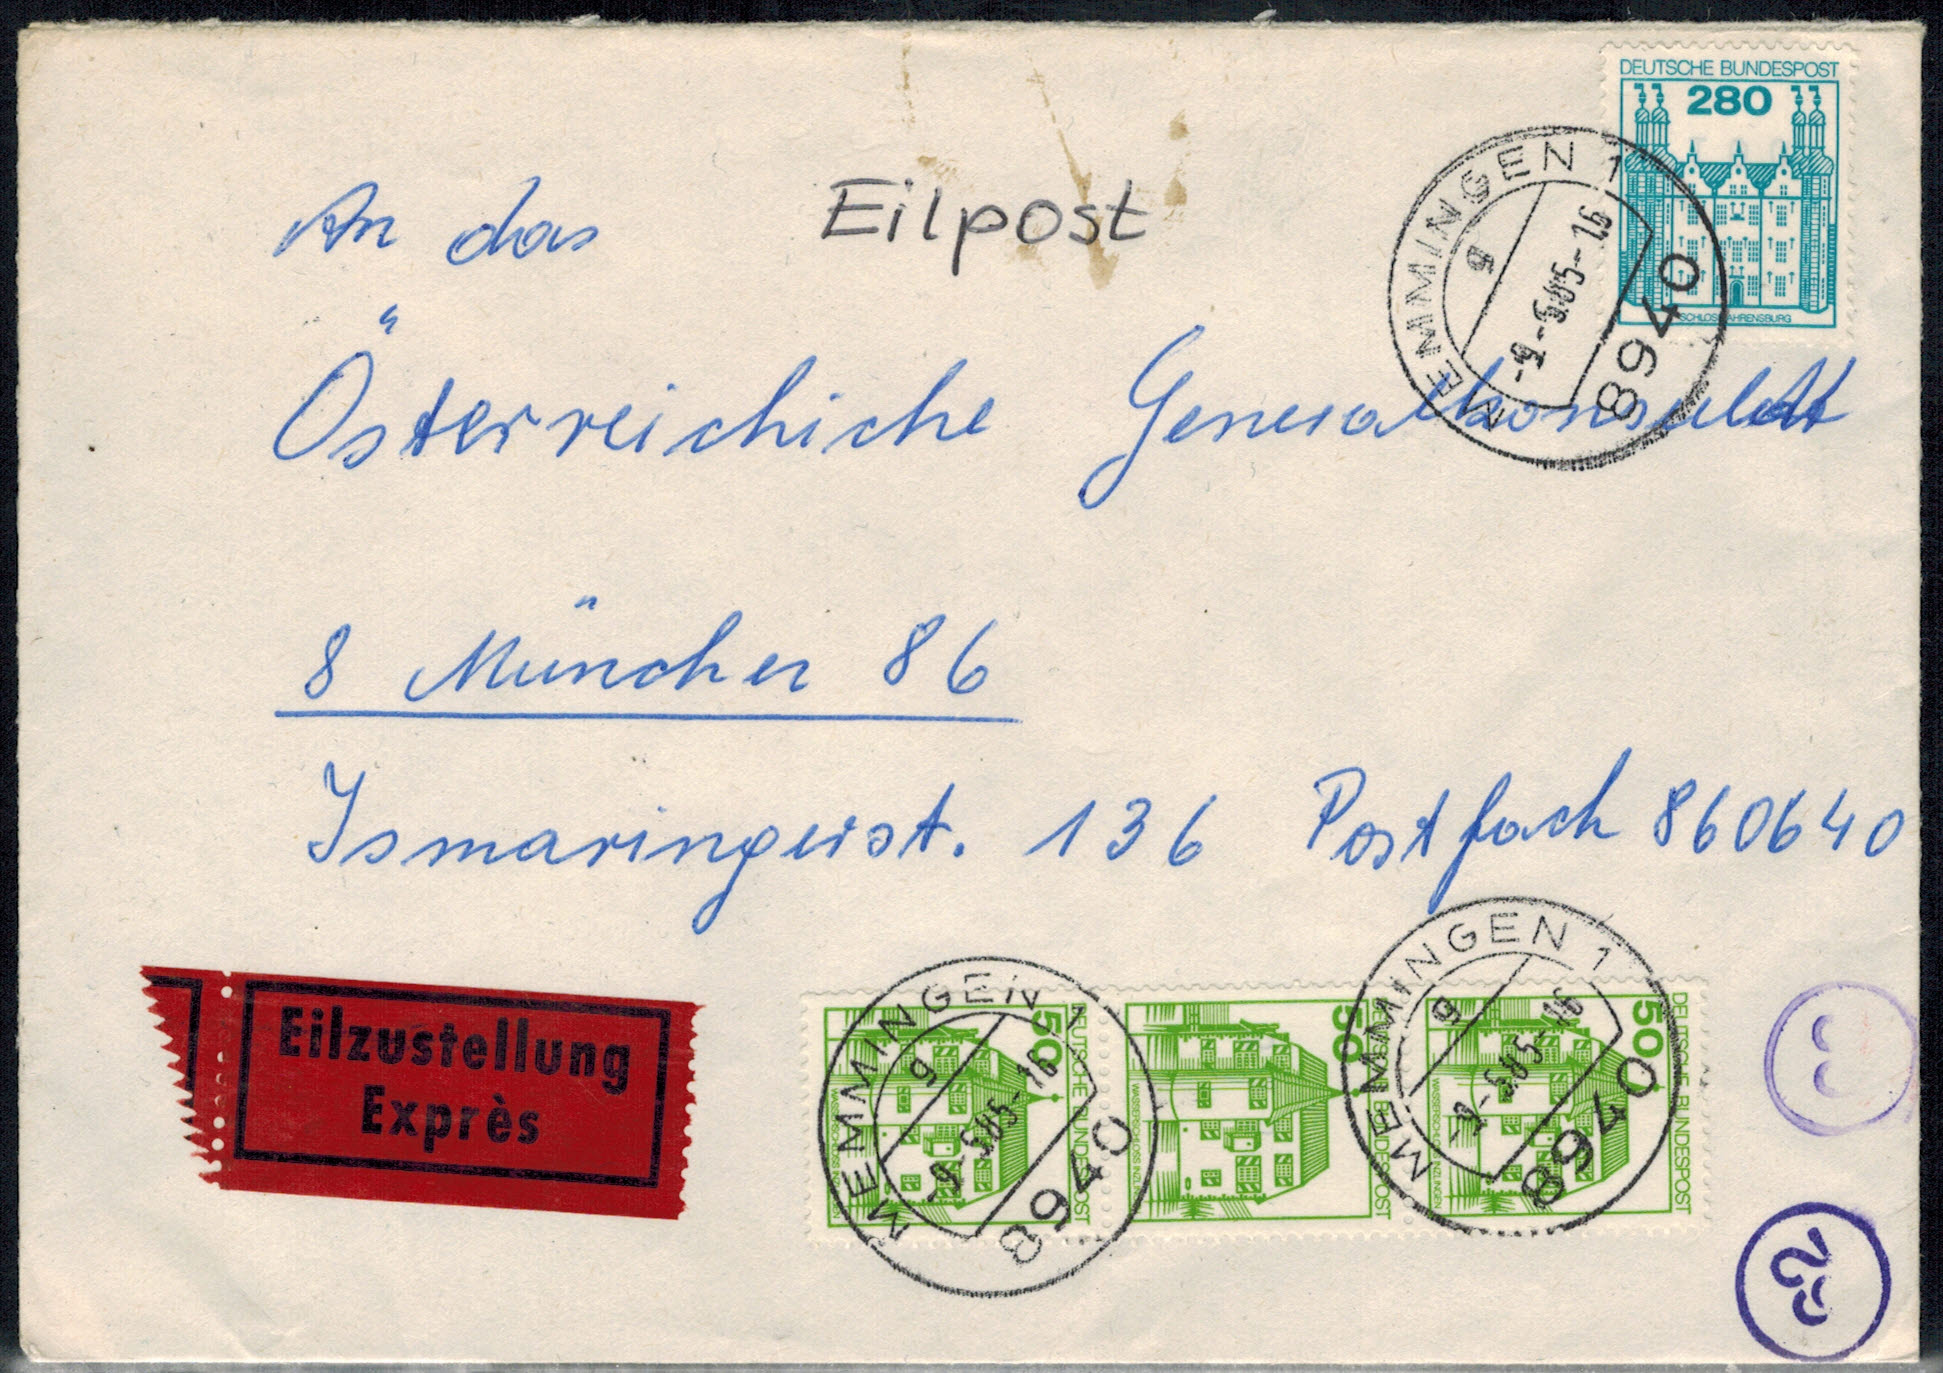 DEUTSCHE BUNDESPOST
280
SCHLOSS AHRENSBURG
MEMMINGEN 1
g
-9.-5.85-16
8940
An das Eilpost
Österreichiche Generalkonsulat
8 München 86
Ismaringerst. 136 Postfach 860640
Eilzustellung
Exprès
50
DEUTSCHE BUNDESPOST
WASSERSCHLOSS INZLINGEN
MEMMINGEN 1
g
-9.-5.85-16
8940
50
DEUTSCHE BUNDESPOST
WASSERSCHLOSS INZLINGEN
50
DEUTSCHE BUNDESPOST
WASSERSCHLOSS INZLINGEN
MEMMINGEN 1
g
-9.-5.85-16
8940